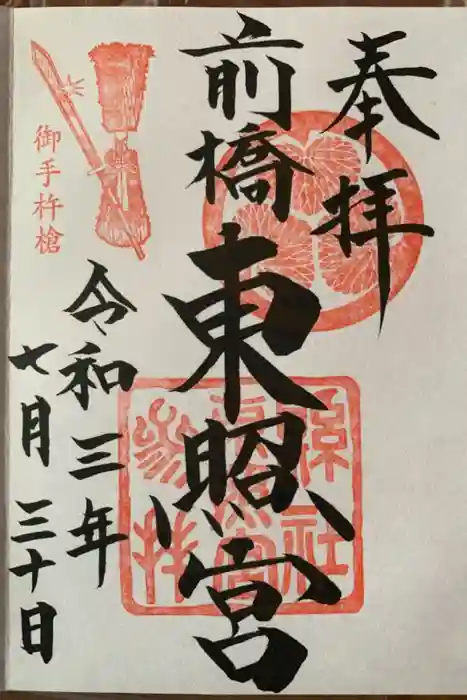 奉拝
前橋東照宮
令和三年
七月三十日
御手杵槍